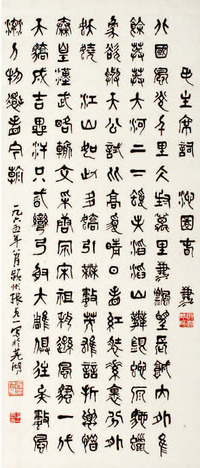 毛主席詞 沁園春 雪
北國風光千里冰封萬里雪飄望長城內外惟
餘莽莽大河上下頓失滔滔山舞銀蛇原馳蠟
象欲與天公試比高須晴日看紅裝素裹分外
妖嬈 江山如此多嬌引無數英雄競折腰惜
秦皇漢武略輸文采唐宗宋祖稍遜風騷一代
天驕成吉思汗只識彎弓射大雕俱往矣數風
流人物還看今朝
一九六五年八月 張 寫於蕪湖